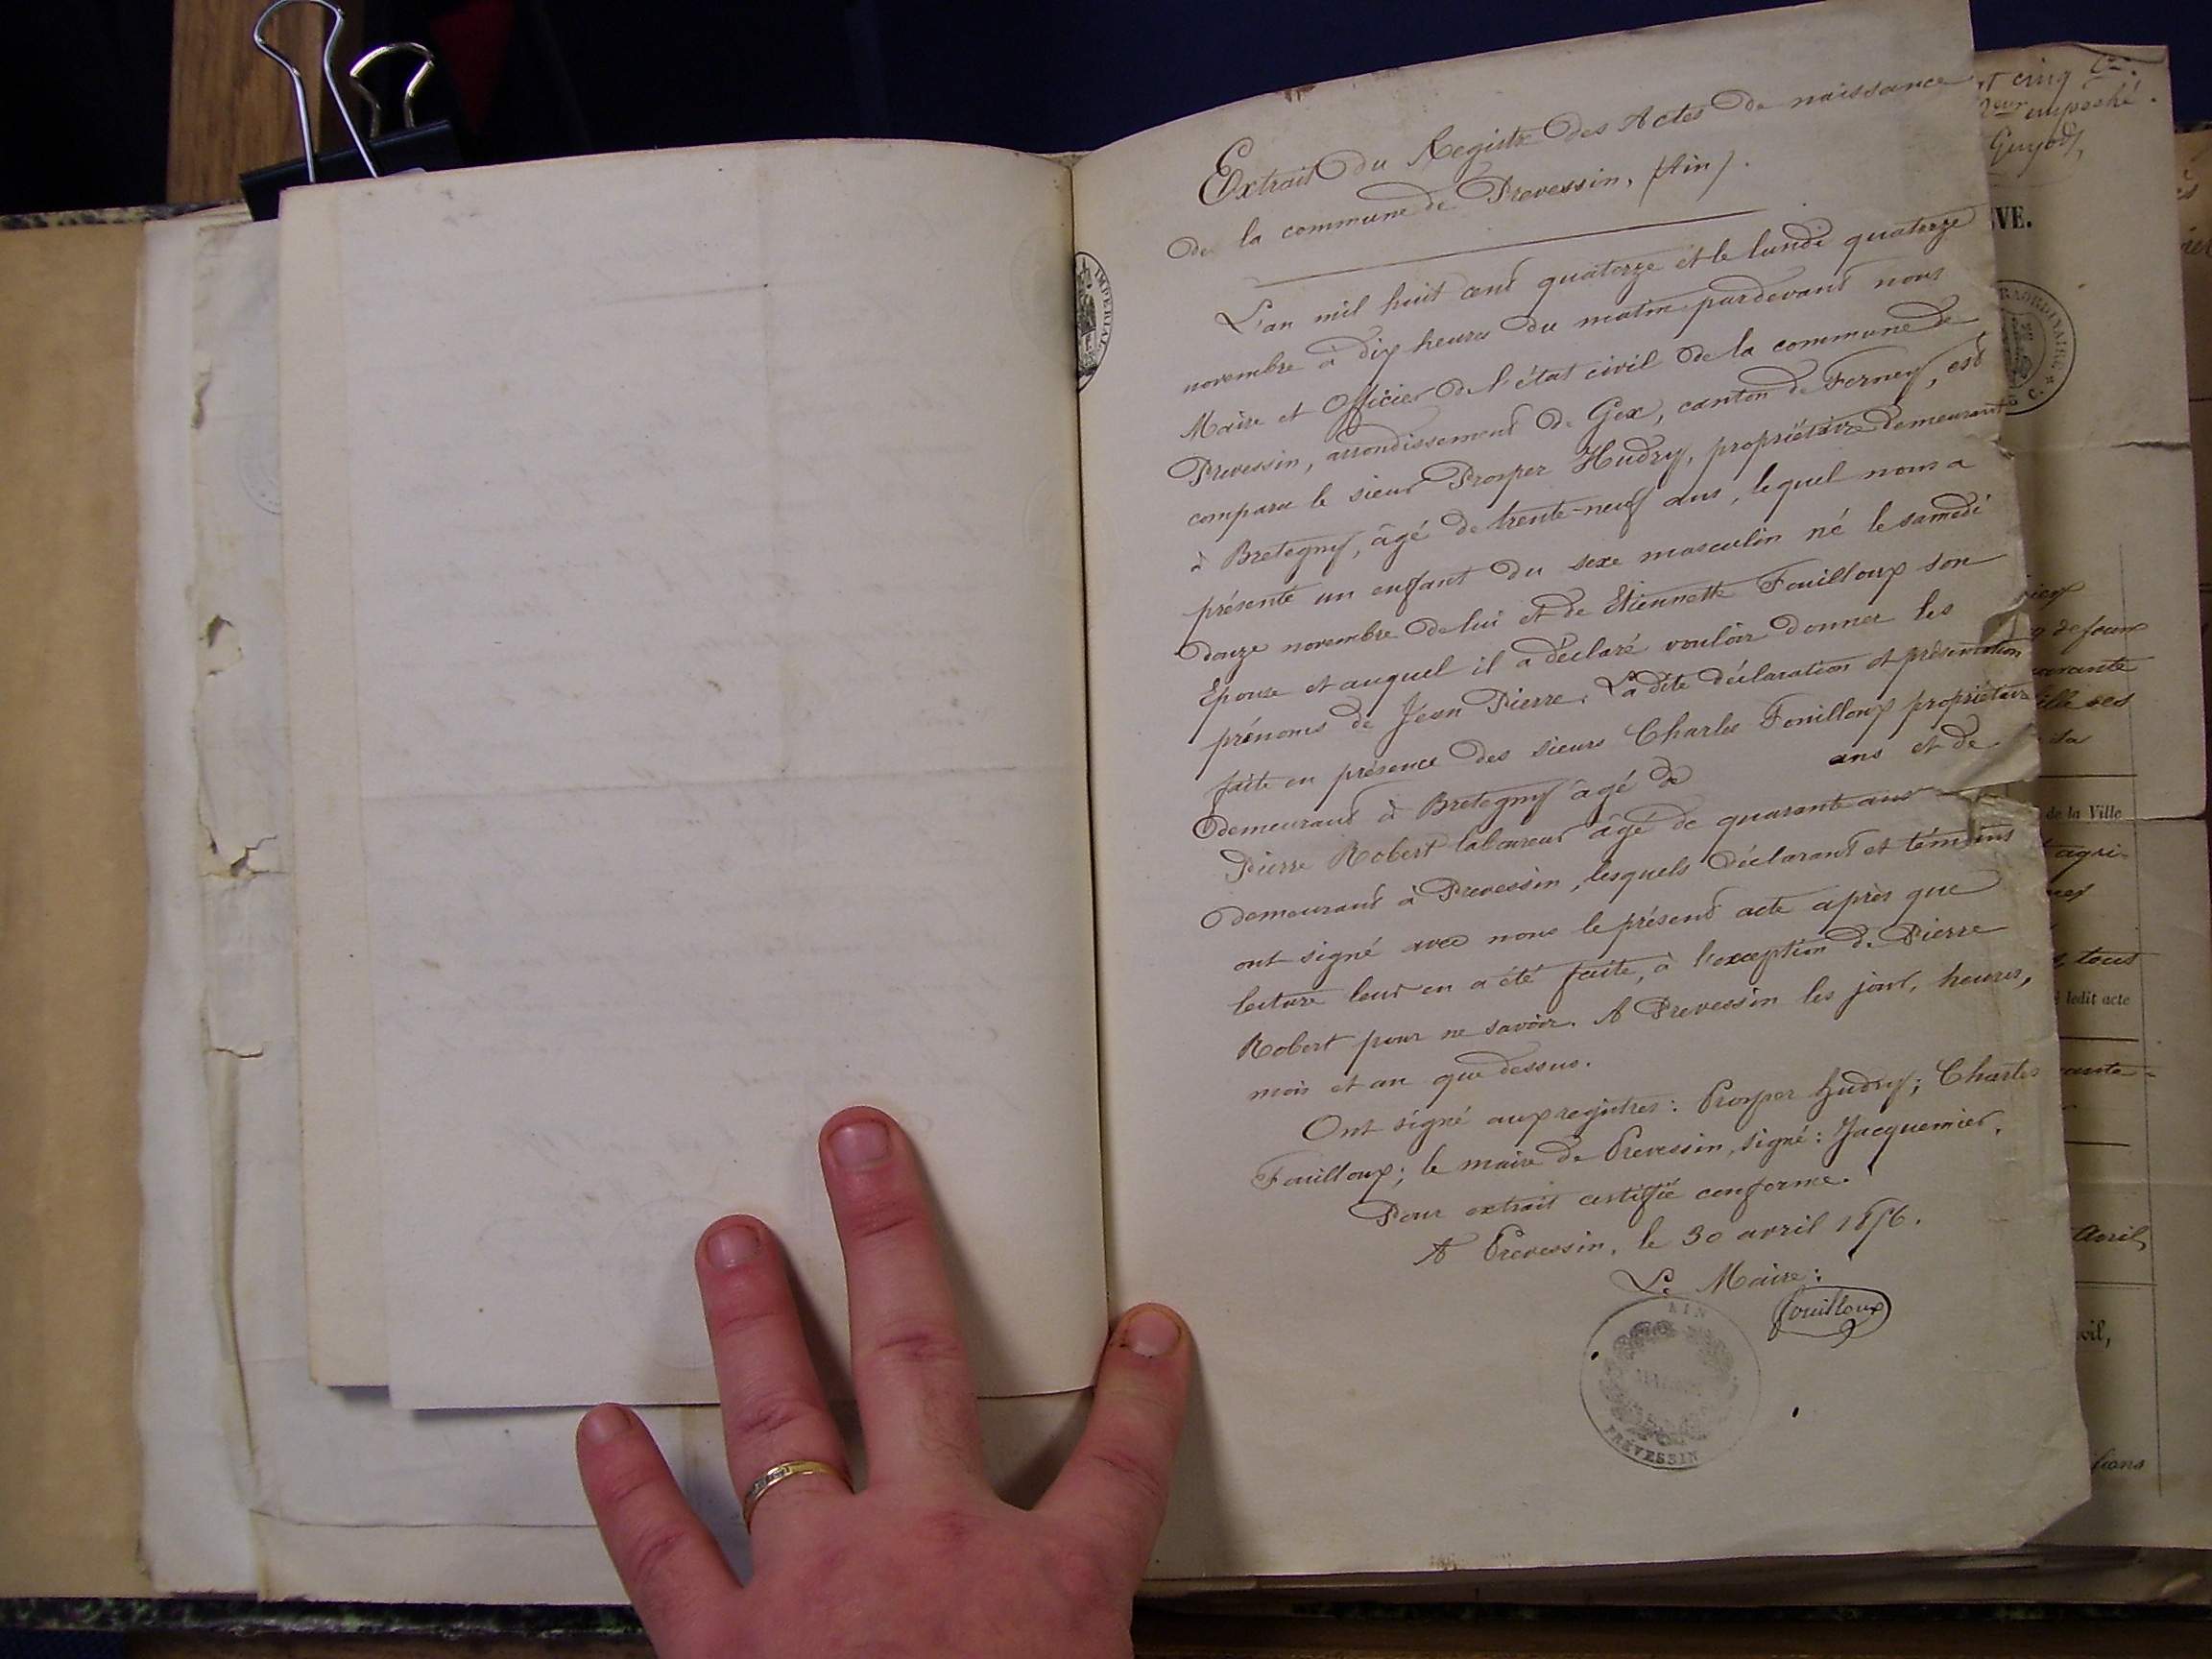 Extrait du Registre des Actes de naissance
de la commune de Prevessin, (Ain).
L'an mil huit cent quatorze et le lundi quatorze
novembre à dix heures du matin pardevant nous
Maire et Officier de l'état civil de la commune de
Prevessin, arrondissement de Gex, canton de Ferney, est
comparu le sieur Prosper Hudry, propriétaire demeurant
à Bretegny, âgé de trente-neuf ans, lequel nous a
présenté un enfant du sexe masculin né le samedi
douze novembre de lui et de Etiennette Fouilloux son
Epouse et auquel il a déclaré vouloir donner les
prénoms de Jean Pierre. La dite déclaration et présentation
faite en présence des sieurs Charles Fouilloux propriétaire
demeurant à Bretegny âgé de ans et de
Pierre Robert laboureur âgé de quarante ans
demeurant à Prevessin, lesquels déclarant et témoins
ont signé avec nous le présent acte après que
lecture leur en a été faite, à l'exception de Pierre
Robert pour ne savoir. A Prevessin les jour, heures,
mois et an que dessus.
Ont signé aux registres: Prosper Hudry; Charles
Fouilloux; le maire de Prevessin, signé: Jacquemier.
Pour extrait certifié conforme.
A Prevessin, le 30 avril 1856.
Le Maire:
Fouilloux
AIN
PRÉVESSIN
IMPERIAL
t cinq
empêché.
Guyot,
VE.
RAORDINAIRE
C.
ille ses
sa
de la Ville
agri-
, tous
ledit acte
Avril
vil,